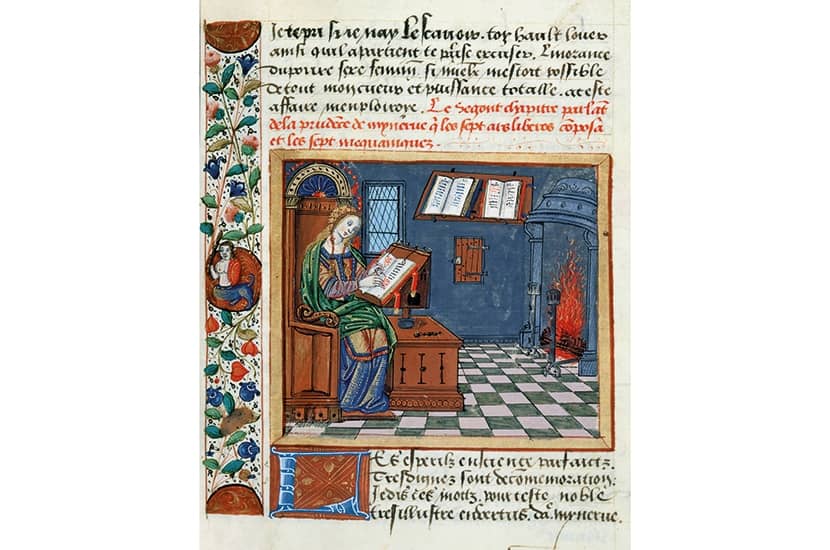 Je te pri si ie nay le scauoir. toy hault louer
ainsi quil apartient te prise excuser. Lmorance
du poure sexe feminin si mieulx mestoit possible
De tout mon cueur et puissance totalle. a ceste
affaire menploiroye. Le segont chapitre parlant
de la prudence de mynerue q les sept ars liberos composa
et les sept mequaniquez.
Es esperitz en science parfaictz
Tresdignez sont de comemoration:
Je dis ces motz pour ceste noble
tresillustre en vertus. da. mynerue.